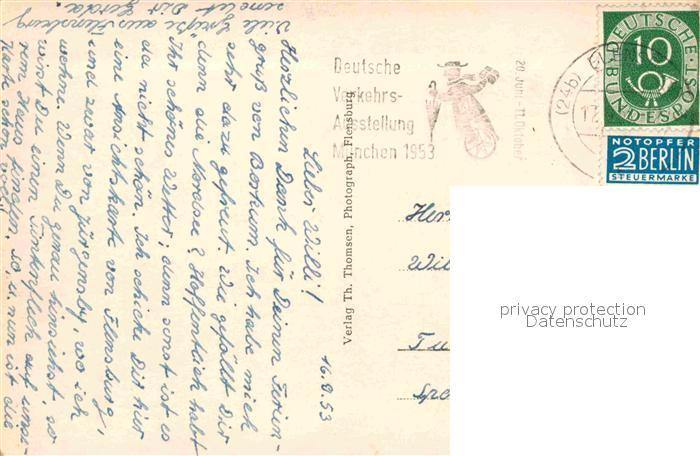 16.9.53
Lieber Willi!
Herzlichen Dank für Deinen Ferien-
gruß von Borkum. Ich habe mich
sehr dazu gefreut. Wie gefällt Dir
denn die Nordsee? Hoffentlich habt
Ihr schönes Wetter, denn sonst ist es
da nicht schön. Ich schicke Dir hier
eine Ansichtskarte von Flensburg,
und zwar von Jürgensby, wo ich
wohne. Wenn Du genau hinsiehst, so
wirst Du einen Tintenfleck auf unse-
rem Haus finden. So, u. nun ist die
Karte schon voll.
Viele Grüße aus Flensburg
sendet Dir Gerda.
Verlag Th. Thomsen, Photograph, Flensburg
Deutsche
Verkehrs-
Ausstellung
München 1953
20. Juni - 11. Oktober
(24b)
17.
DEUTSCHE
BUNDESPOST
10
NOTOPFER
2 BERLIN
STEUERMARKE
Her
Wil
Spo
privacy protection
Datenschutz